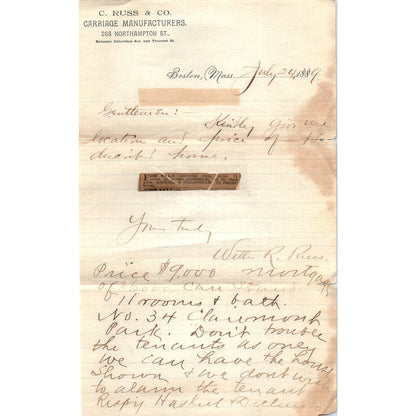 C. RUSS & CO.
CARRIAGE MANUFACTURERS.
263 NORTHAMPTON ST.,
Between Columbus Ave. and Tremont St.
Boston, Mass. July 24, 1889
Gentlemen:
Kindly give me
location and price of
described house.
Yours truly
Walter R. Russ.
Price $9,000 mortgage
of can stand
11 rooms & bath.
No. 34 Clairmont
Park. Don't trouble
the tenants as only
we can have the house
shown & we don't wish
to alarm the tenant
Respy Haskell &